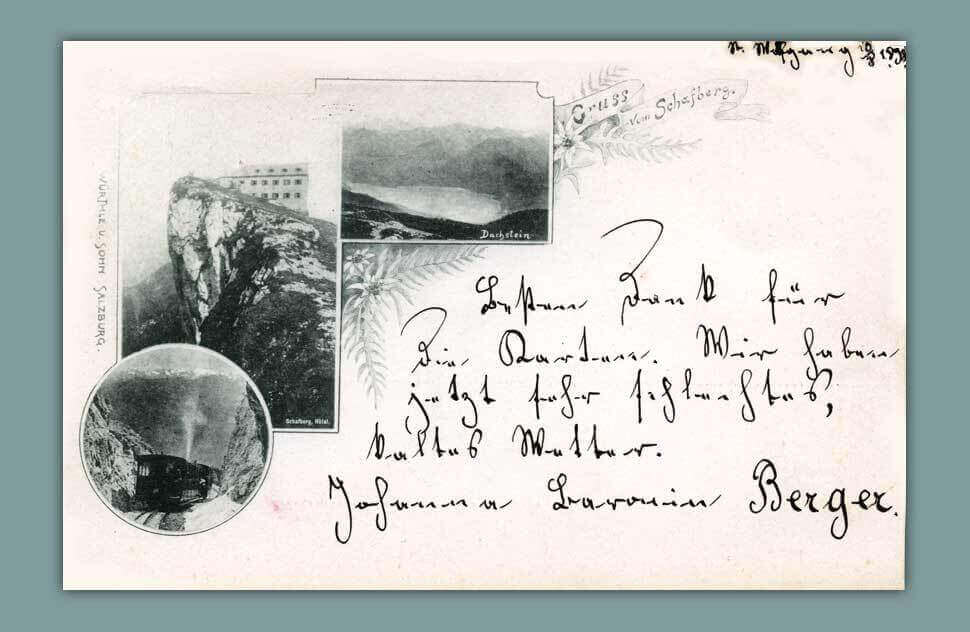 St. Wolfgang 10/8 189
Gruss
vom Schafberg.
WÜRTHLE U. SOHN SALZBURG.
Dachstein
Schafberg, Hôtel.
Besten Dank für
die Karten. Wir haben
jetzt sehr schlechtes,
kaltes Wetter.
Johanna Baronin Berger.